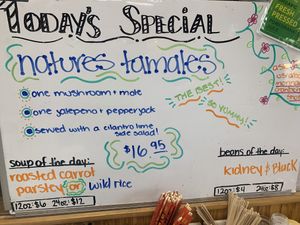 TODAY'S SPECIAL
natures tamales
one mushroom + mole
one jalepeño + pepperjack
served with a cilantro lime
side salad!
$16.95
THE BEST!
SO YUMMY!
FRESH
PRESSED!
soup of the day:
roasted carrot
parsley or wild rice
12oz: $6 24oz: $12
beans of the day:
kidney & black
12oz: $4 24oz: $8